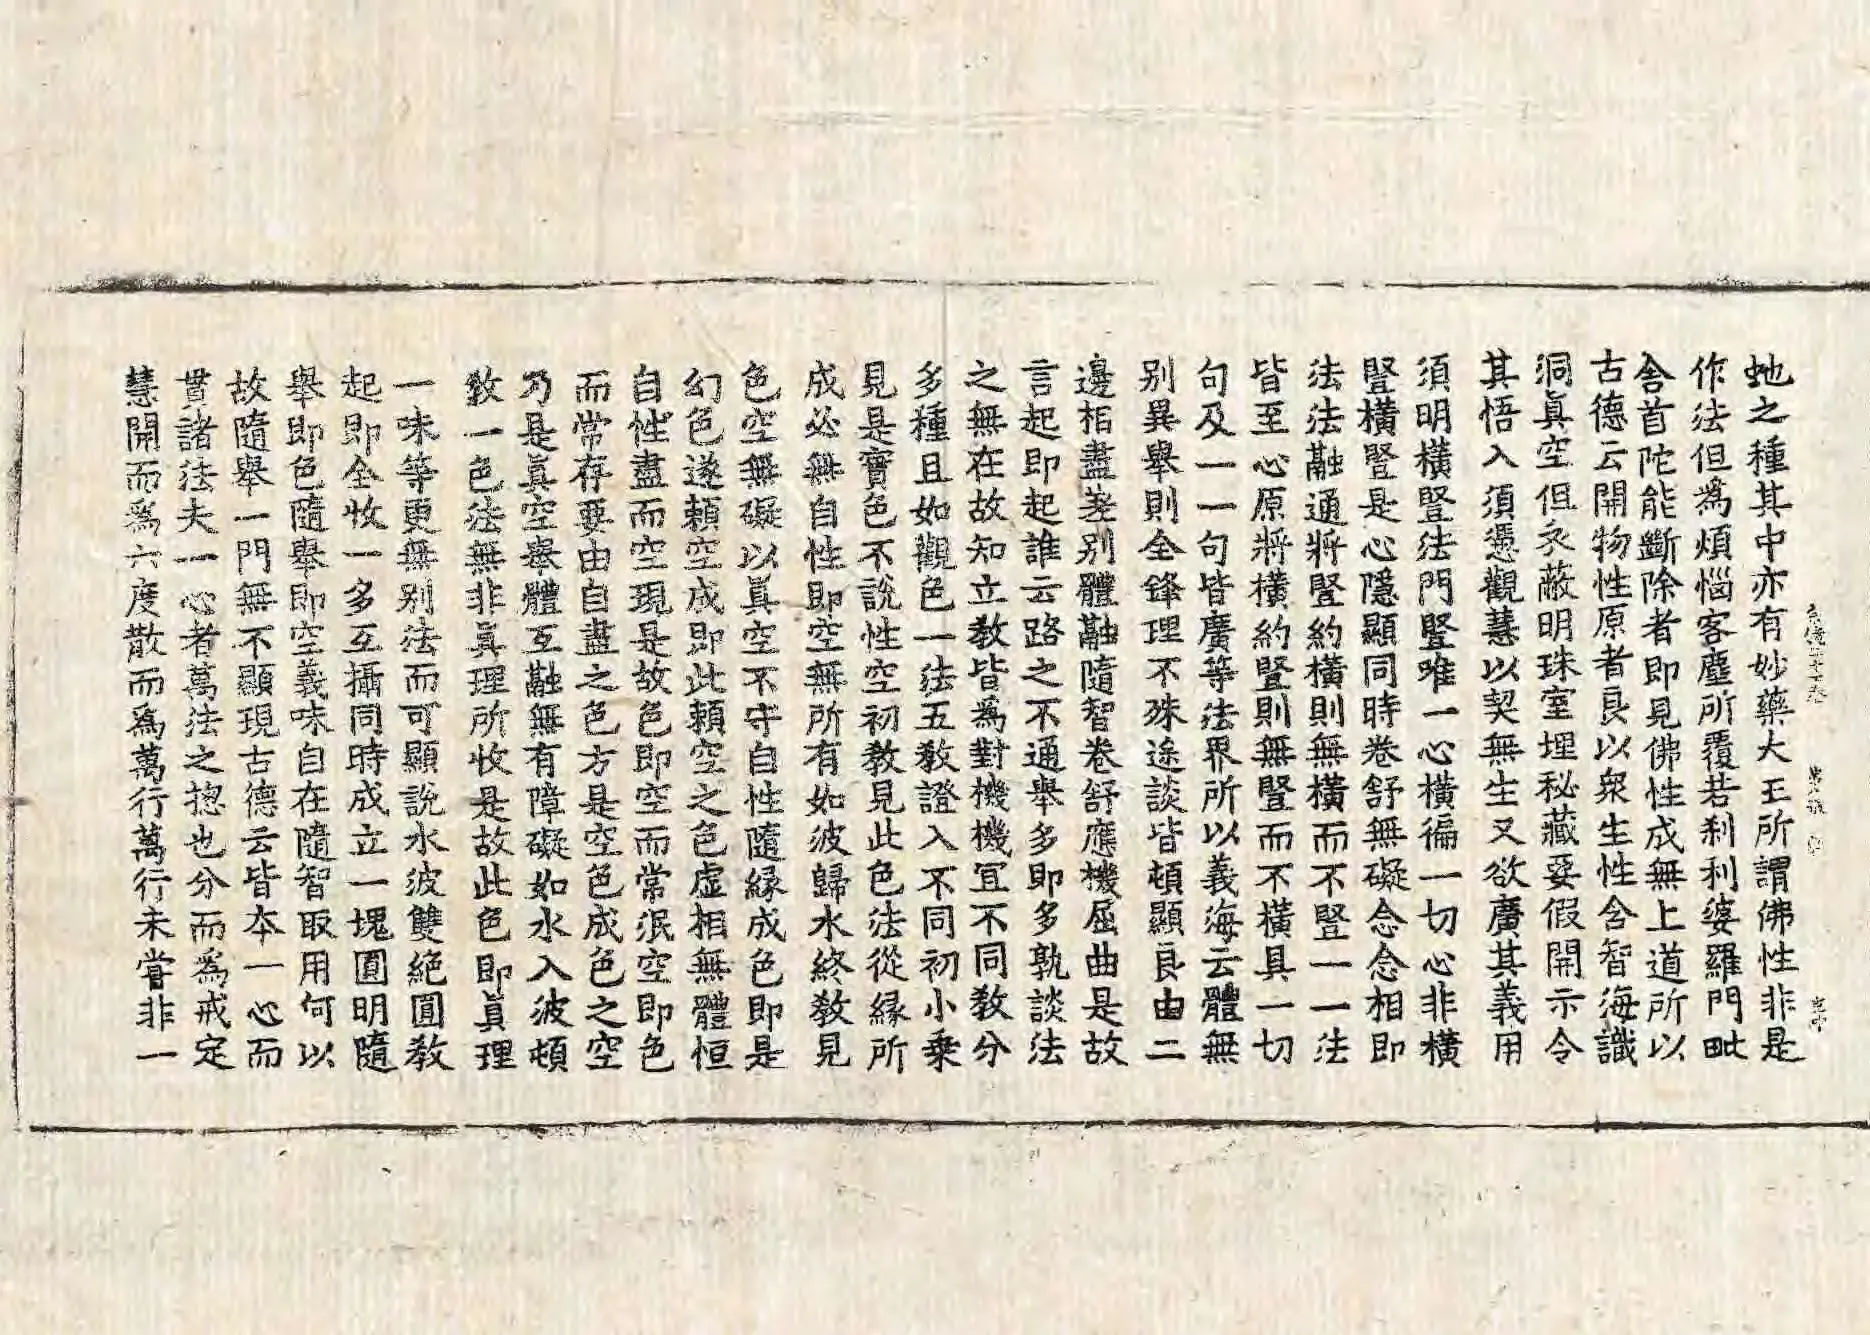 虵之種其中亦有妙藥大王所謂佛性非是
作法但爲煩惱客塵所覆若刹利婆羅門毗
舍首陀能斷除者即見佛性成無上道所以
古德云開物性原者良以衆生性含智海識
洞眞空但衣蔽明珠室埋秘藏妄假開示令
其悟入須憑觀慧以契無生又欲廣其義用
須明橫豎法門豎唯一心橫徧一切心非橫
豎橫豎是心隱顯同時卷舒無礙念念相即
法法融通將豎約橫則無橫而不豎一一法
皆至心原將橫約豎則無豎而不橫具一切
句及一一句皆廣等法界所以義海云體無
别異舉則全鋒理不殊途談皆頓顯良由二
邊相盡差别體融隨智卷舒應機屈曲是故
言起即起誰云路之不通舉多即多孰談法
之無在故知立教皆爲對機機冝不同教分
多種且如觀色一法五教證入不同初小乗
見是實色不說性空初教見此色法從緣所
成必無自性即空無所有如波歸水終教見
色空無礙以眞空不守自性隨緣成色即是
幻色遂賴空成即此賴空之色虛相無體恒
自性盡而空現是故色即空而常泯空即色
而常存要由自盡之色方是空色成色之空
乃是眞空舉體互融無有障礙如水入波頓
教一色法無非眞理所收是故此色即眞理
一味等更無别法而可顯說水波雙絕圓教
起即全收一多互攝同時成立一塊圓明隨
舉即色隨舉即空義味自在隨智取用何以
故隨舉一門無不顯現古德云皆本一心而
貫諸法夫一心者萬法之揔也分而爲戒定
慧開而爲六度散而爲萬行萬行未嘗非一